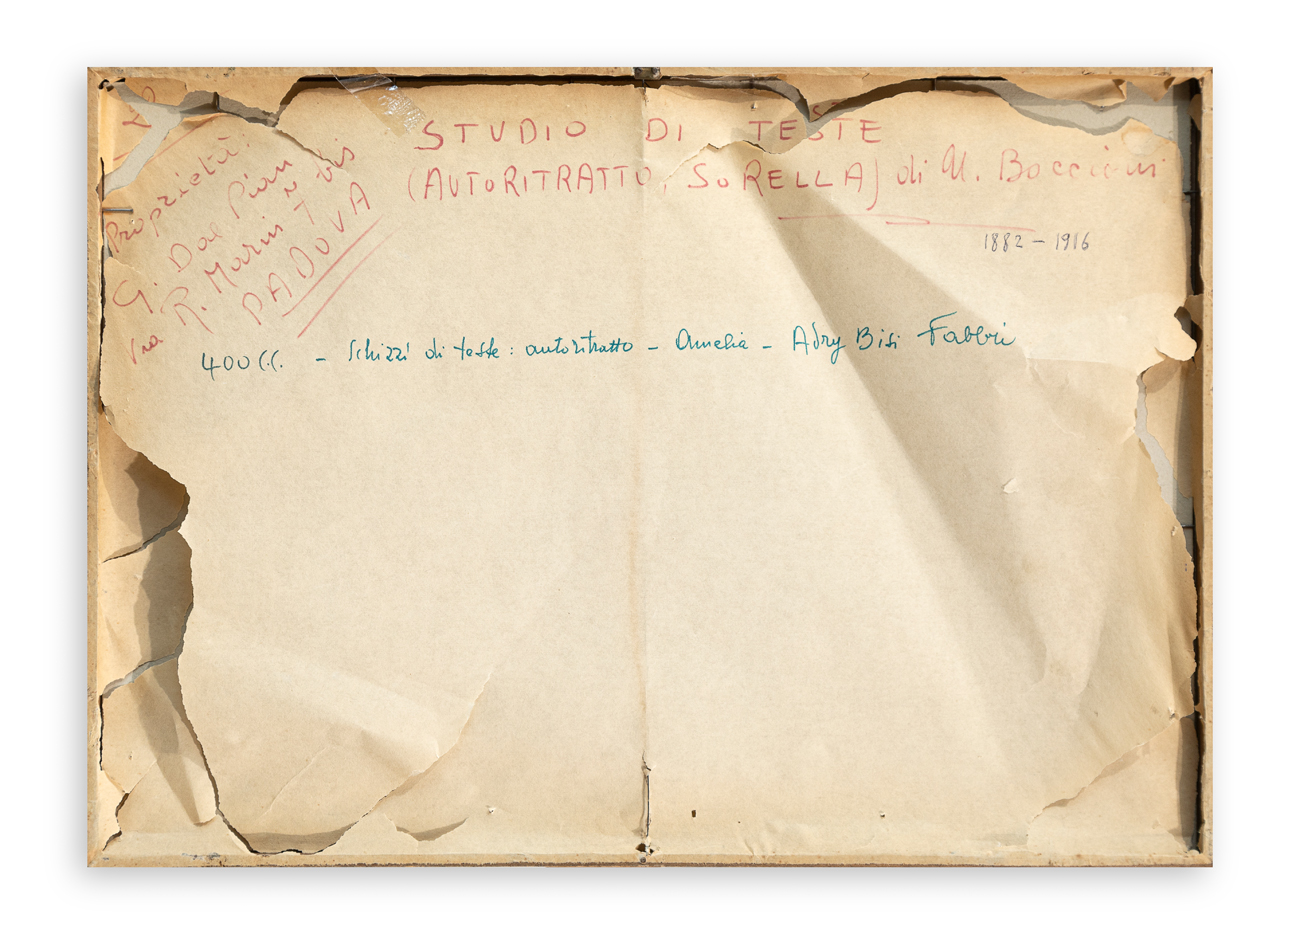 Proprietà:
G. Dal Pian
via R. Marin N 7 bis
PADOVA
STUDIO DI TESTE
(AUTORITRATTO, SORELLA) di U. Boccioni
1882 – 1916
400 C.C. – Schizzi di teste: autoritratto – Amelia – Adry Bisi Fabbri